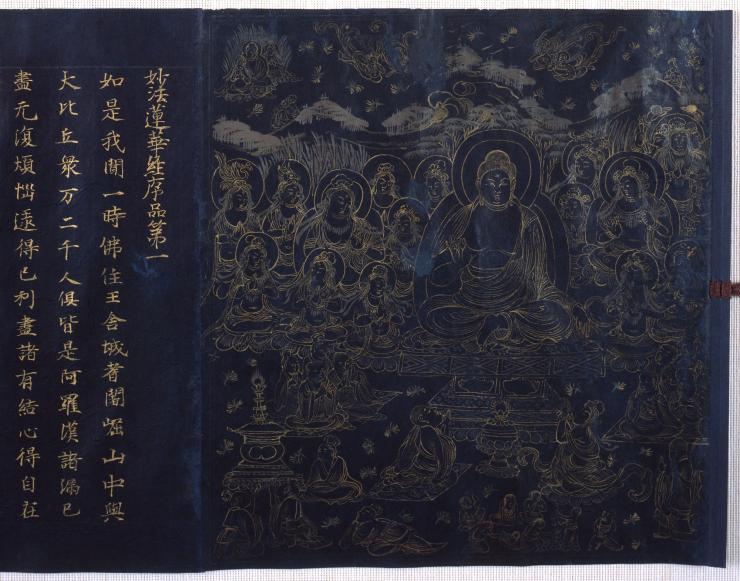 妙法蓮華経序品第一
如是我聞一時佛住王舎城耆闍崛山中與
大比丘衆万二千人俱皆是阿羅漢諸漏已
盡无復煩惱逮得已利盡諸有結心得自在